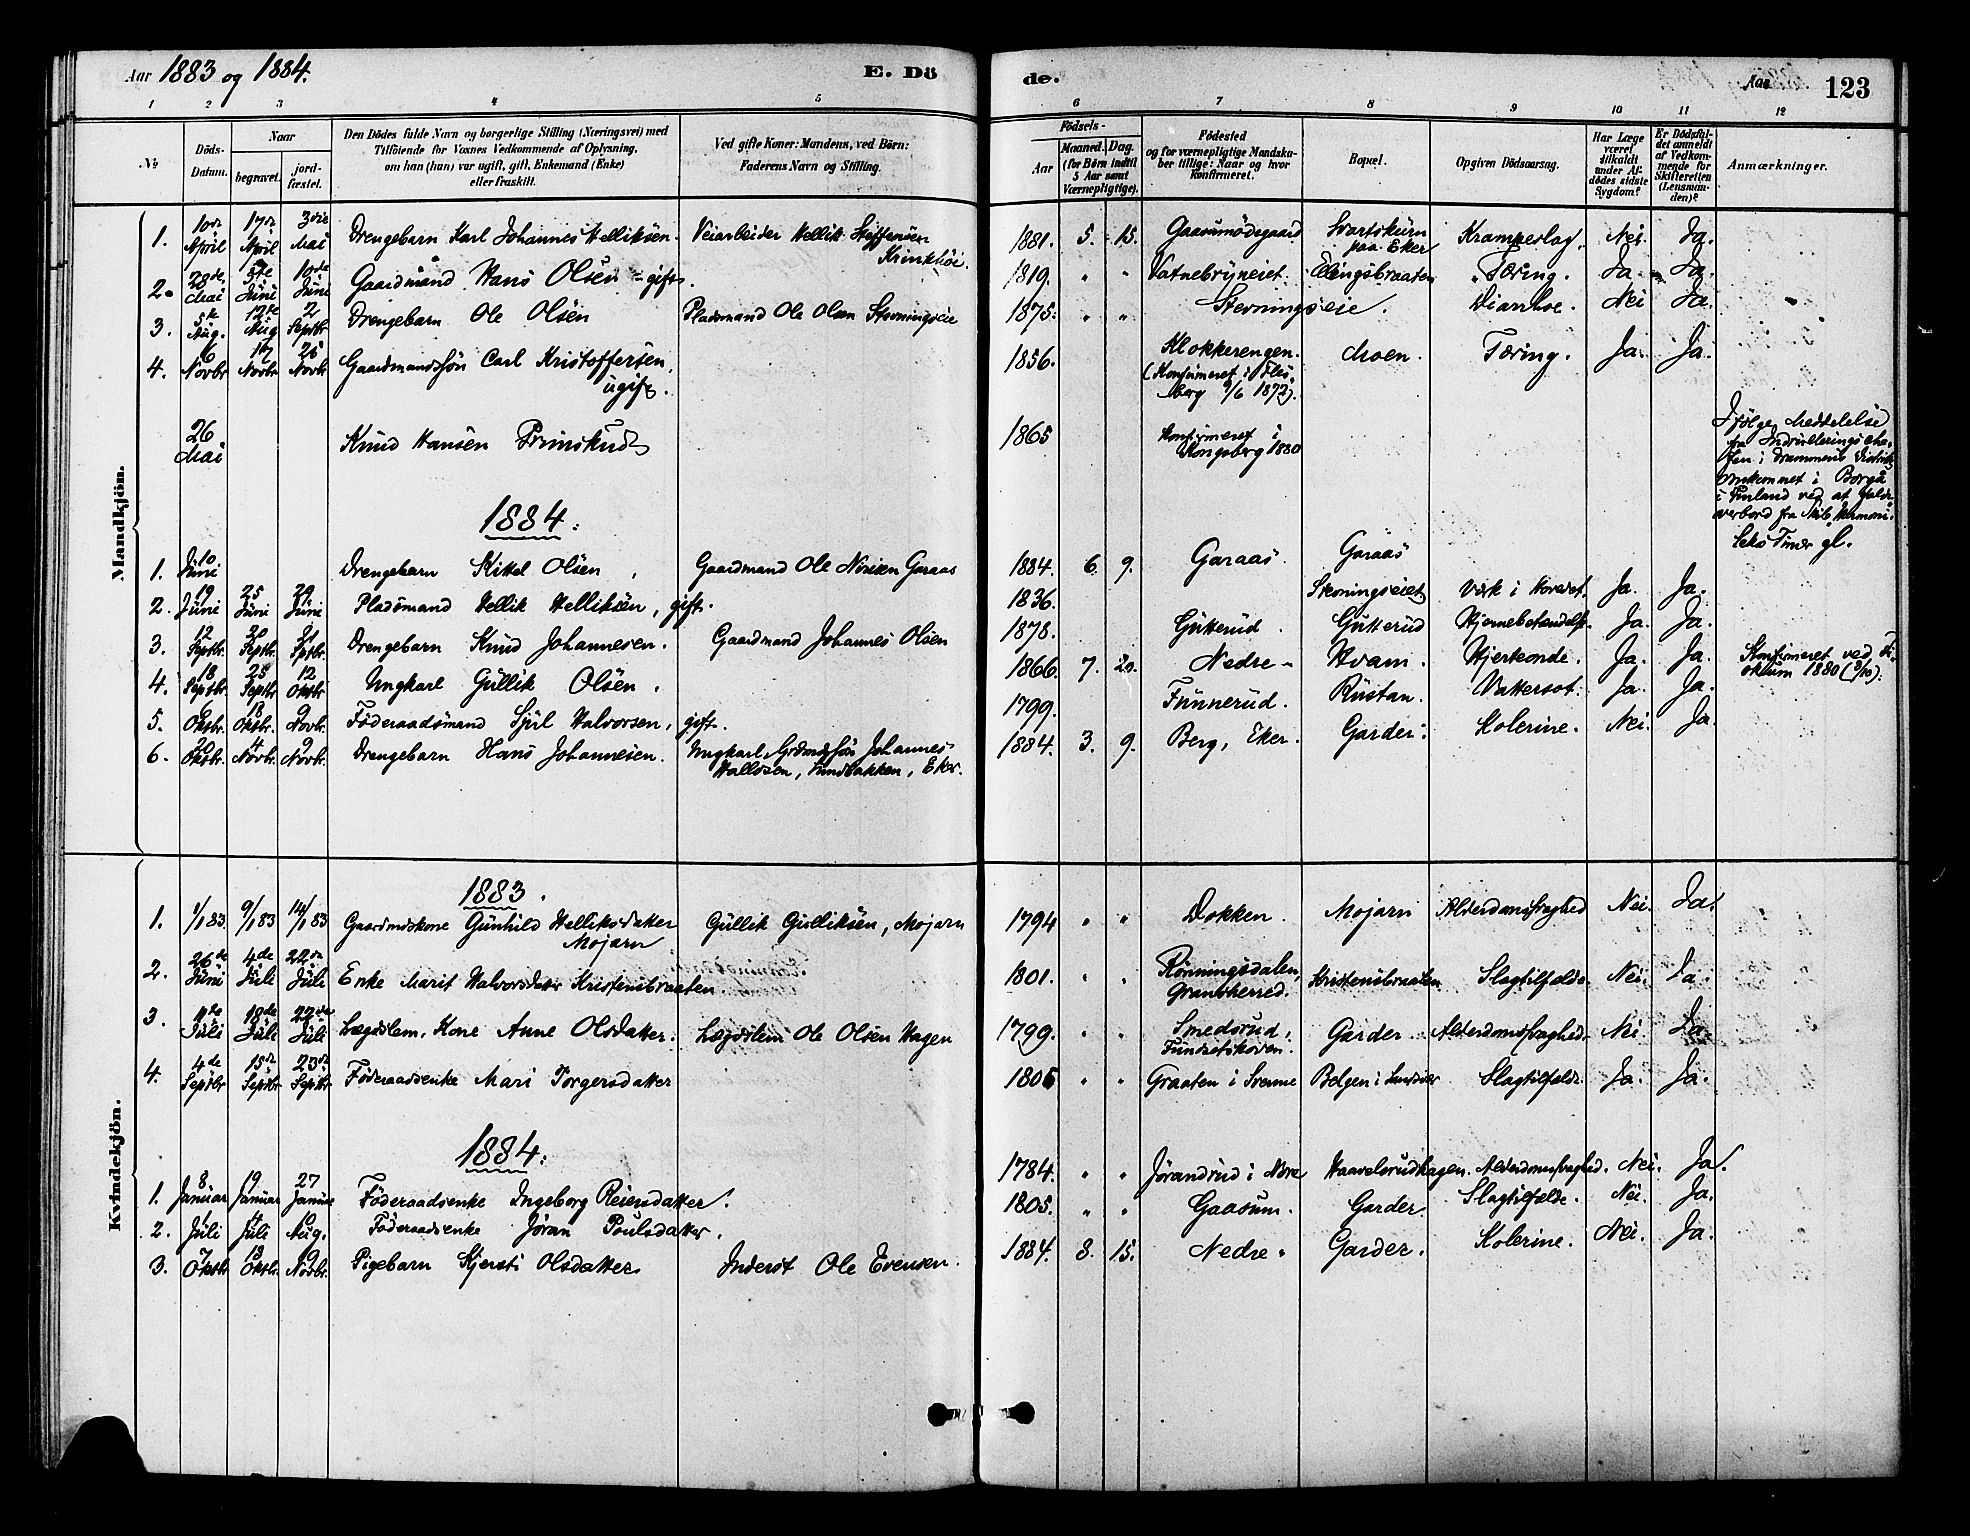 Aar 1883 og 1884.
E. Dö
1 2 3 4 5
No
Döds-Datum.
Naar
begravet.
jord-fæstet.
Den Dödes fulde Navn og borgerlige Stilling (Næringsvei) med
Tilföiende for Voxnes Vedkommende af Oplysning,
om han (hun) var ugift, gift, Enkemand (Enke)
eller fraskilt.
Ved gifte Koner: Mandens, ved Börn:
Faderens Navn og Stilling.
Mandkjön.
1. 10de April 17de April 3die Mai Drengebarn Karl Johannes Helliksen. Veiarbeider Hellik Steffensen
2. 28de Mai 5te Juni 10de Juni Gaardmand Hans Olsen - gift.
3. 5te Aug. 12te Aug 2 Septbr. Drengebarn Ole Olsen Pladsmand Ole Olsen Stevningseie
4. 6 Novbr. 17 Novbr. 25 Novbr Gaardmandssön Carl Kristoffersen,
ugift.
26 Mai Knud Hansen Prinskud
1884.
1. 10 Juni Drengebarn Kittel Olsen, Gaardmand Ole Garaas
2. 19 Juni 25 Juni 29 Juni Pladsmand Hellik Helliksen, gift.
3. 12 Septbr. 21 Septbr. 21 Septbr. Drengebarn Knud Johannesen. Gaardmand Johannes Olsen
4. 18 Septbr. 25 Septbr 12 Oktbr. Ungkarl Gullik Olsen.
5. 6 Oktbr. 13 Oktbr. 9 Novbr. Föderaadsmand Sjul Halvorsen, gift.
6. 20 Oktbr. 4 Novbr. 9 Novbr. Drengebarn Hans Johannesen. Ungkarl, Johannes
Eker.
Kvindekjön.
1883.
1. 1/1 83 9/1 83 14/1 83 Gaardmdskone Gunhild Helliksdatter Gullik Gulliksen, Mojarn
Mojarn
2. 26de Juni 4de Juli 22de Juli Enke Marit Halvorsdatter Kristensbraaten
3. 11te Juli 18de Juli 22de Juli Lægdslem, Kone Anne Olsdatter. Lægdslem Ole Olsen Hagen
4. 4de Septbr 15de Septbr 23de Septbr Föderaadsenke Mari Torgersdatter
1884.
1. 8 Januar 19 Januar 27 Januar Föderaadsenke Ingeborg Reiersdatter.
2. Juli Juli Aug. Föderaadsenke Jöran Poulsdatter.
3. 7 Oktbr. 13 Oktbr. 9 Novbr. Pigebarn Kjersti Olsdatter Inderst Ole Evensen.
de.
Aar 123
6 7 8 9 10 11 12
Födsels-
Aar
Maaned. Dag.
(for Börn indtil
5 Aar samt
Værnepligtige).
Födested
og for værnepligtige Mandska-
ber tillige: Naar og hvor
Konfirmeret.
Bopæl.
Opgiven Dödsaarsag.
Har Læge
været
tilkaldt
under Af-
dödes sidste
Sygdom?
Er Dödsfal-
det anmeldt
af Vedkom-
mende for
Skifteretten
(Lensman-
den)?
Anmærkninger.
1881. 5. 15. Gaasumödegaard Svartskurn
paa Eker Krampeslag. Nei. Ja.
1819. " " Vatnebryneiet. Ellingsbraaten Tæring. Ja. Ja.
1875. " " Stevningseie. Diarrhoe. Nei Ja.
1856. Klokkerengen. Moen. Tæring. Ja. Ja.
(Konfirmeret i Fles-
berg 9/6 1872).
1865 Konfirmeret i
Kongsberg 1880
Ifölge Meddelelse
fra Indrulleringsche-
fen i Drammens Distrikt
omkommet i Borgå
i Finland ved at falde
overbord fra Skib
1884. 6. 9. Garaas. Garaas
1836. Stevningseiet Værk i Hovedet. Ja. Ja.
1878. Gutterud. Gutterud Hjernebetændelse. Ja. Ja.
1866. 7. 20. Nedre - Hvam. Hjerteonde. Ja. Ja. Konfirmeret ved Fi-
skum 1880 (3/10).
1799. Funnerud. Rustan. Vattersot. Ja. Ja.
1884. 3. 9. Berg, Eker. Garder. Kolerine. Nei. Ja.
1794 " " Dokken. Mojarn Alderdomssvaghed Nei. Ja.
1801. " " Rönningsdalen, Kristensbraaten Slagtilfælde. Nei. Ja.
Gransherred.
1799. " " Smedsrud, Garder. Alderdomssvaghed. Nei. Ja.
1806 " " Graaten i Svenne Bolgen i Slagtilfælde. Ja. Ja.
1784. " " Jörandrud i Nore Haavelsrudhagen. Alderdomssvaghed. Nei. Ja.
1805. " " Gaasum. Garder. Slagtilfælde. Nei. Ja.
1884. 8. 15. Nedre " Garder. Kolerine. Nei. Ja.